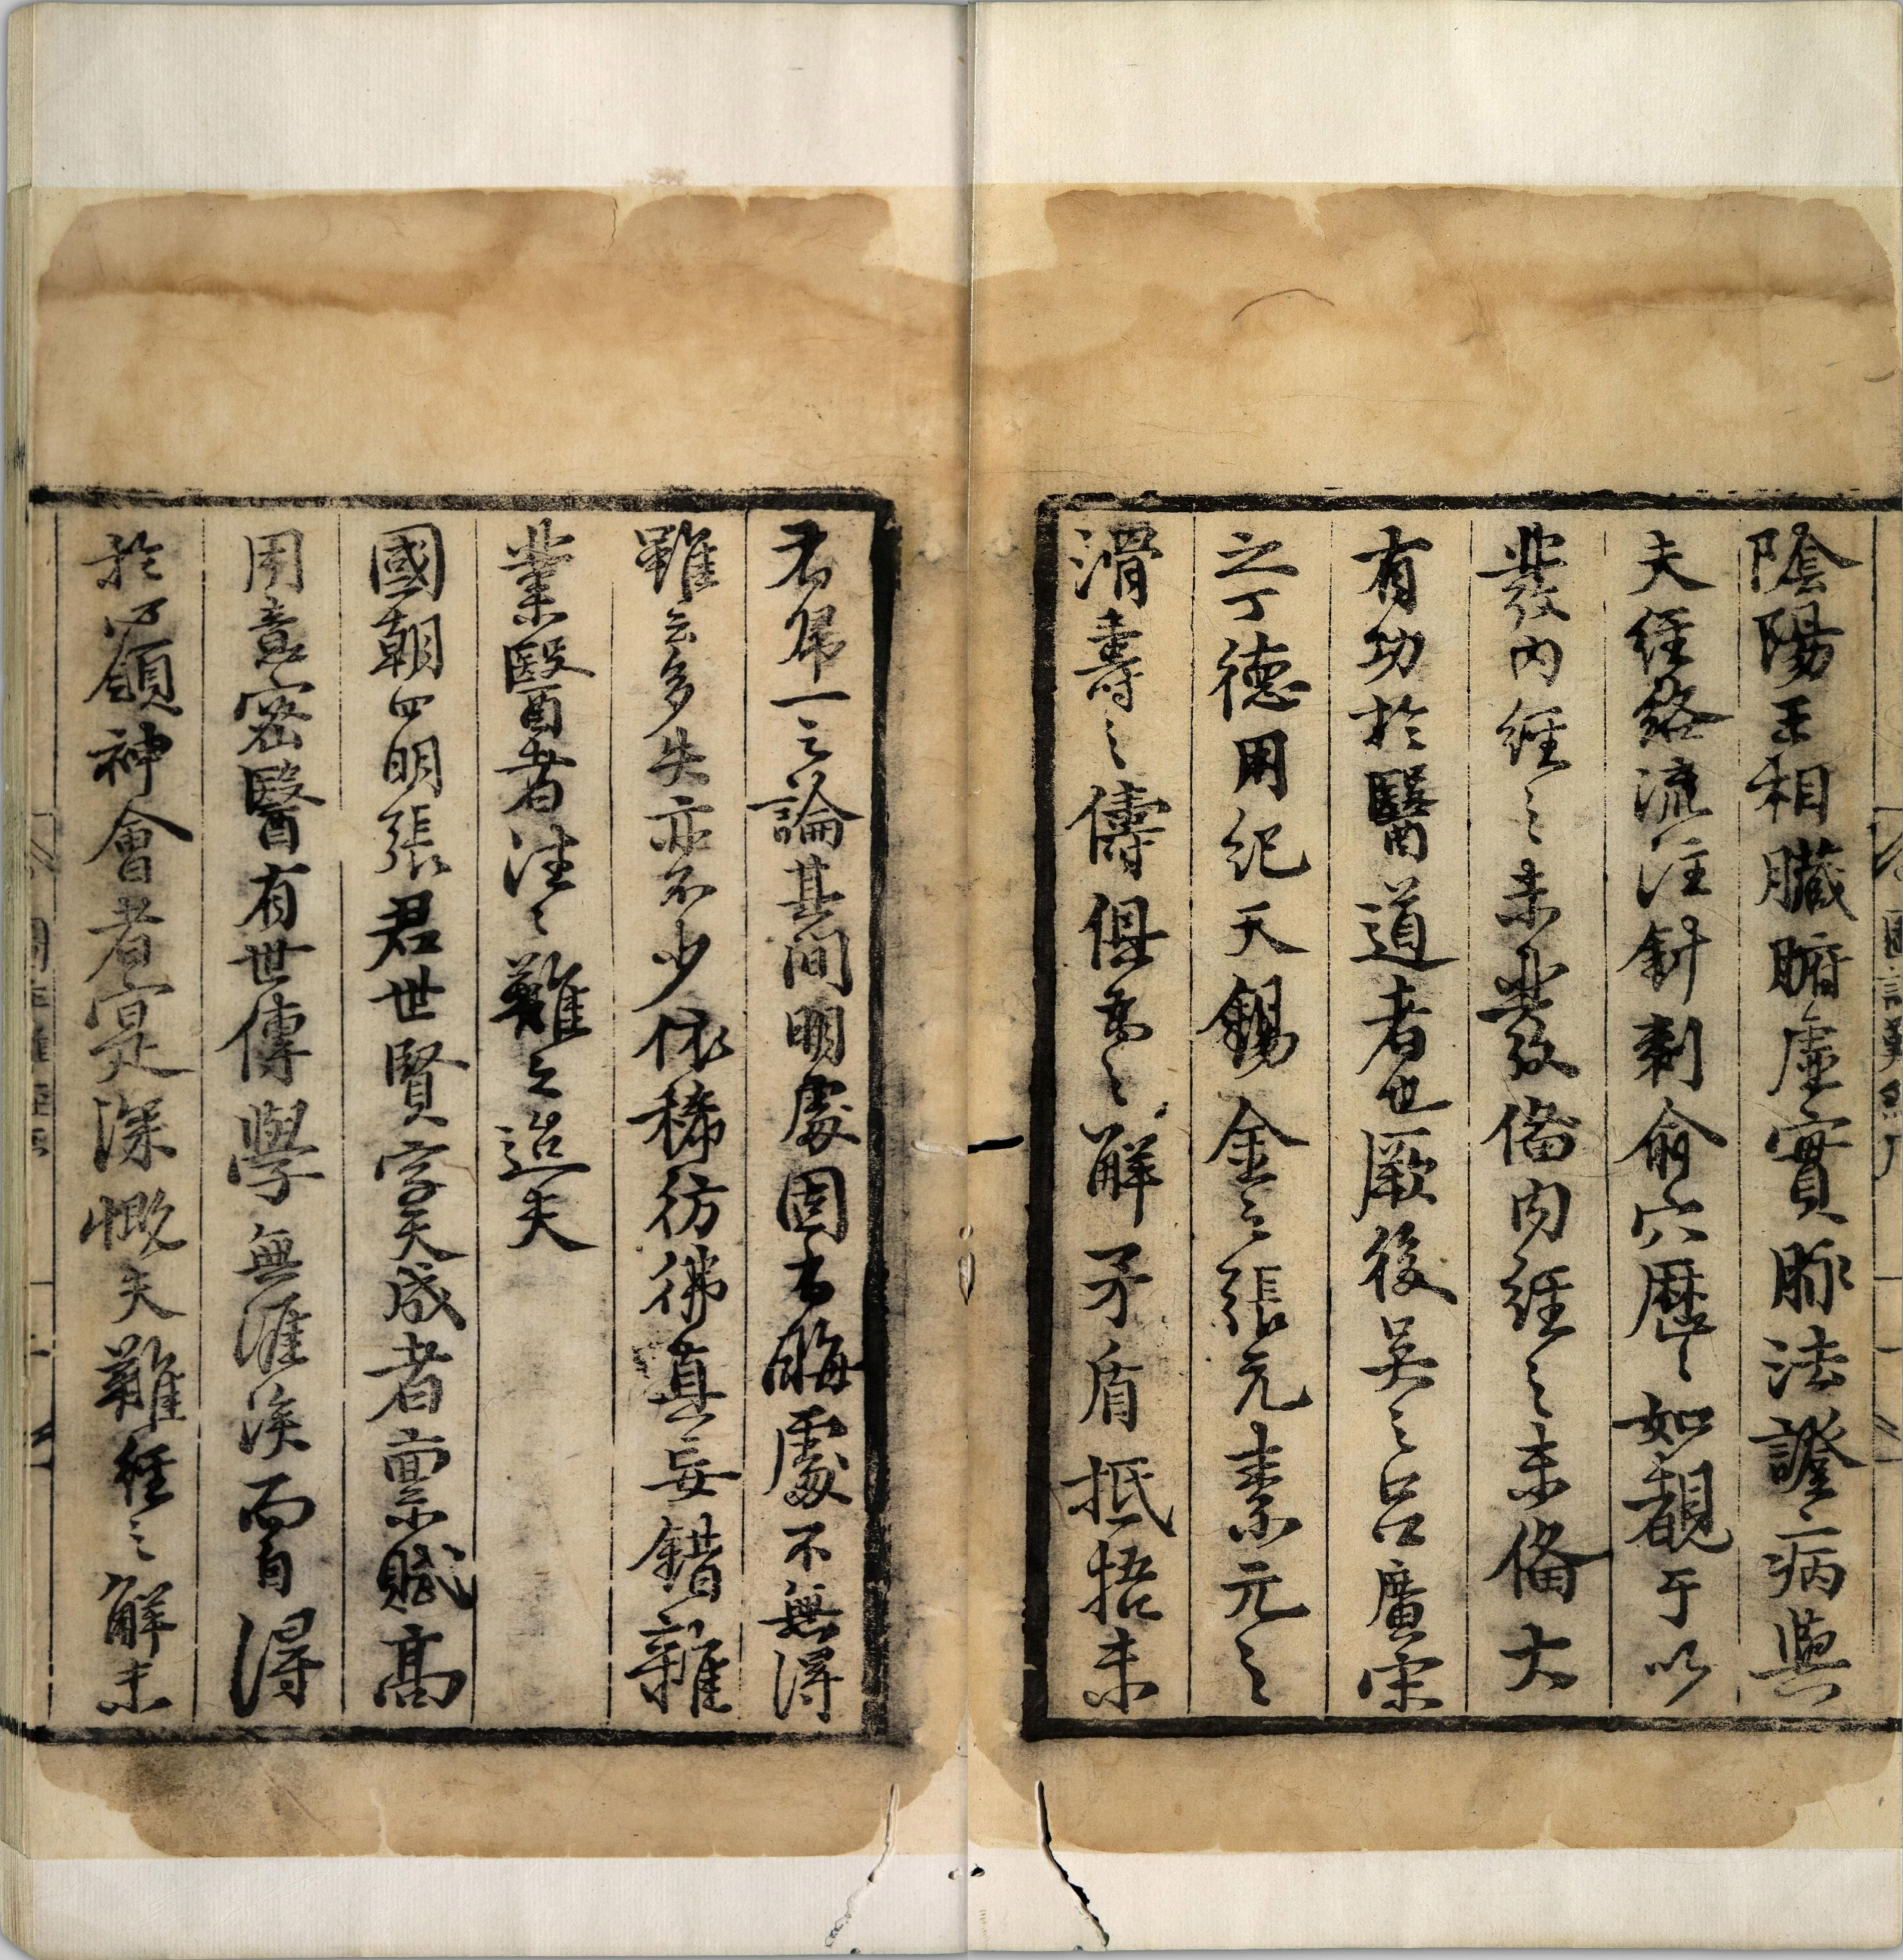 陰陽王相臟腑虛實脉法證病與
夫經絡流注針刺俞穴歷〻如覩于以
發內經之未發備內經之未備大
有功於醫道者也厥後吳之呂廣宋
之丁德用紀天錫金之張元素元之
滑壽之儔俱爲之解矛盾抵捂未
有歸一之論其間明處固有晦處不無得
雖云多失亦不少依稀彷彿真妄錯雜
業醫者往〻難之迨夫
國朝四明張君世賢字天成者稟賦高
用意密醫有世傳學無涯涘而自得
於心領神會者寔深慨夫難經之解未